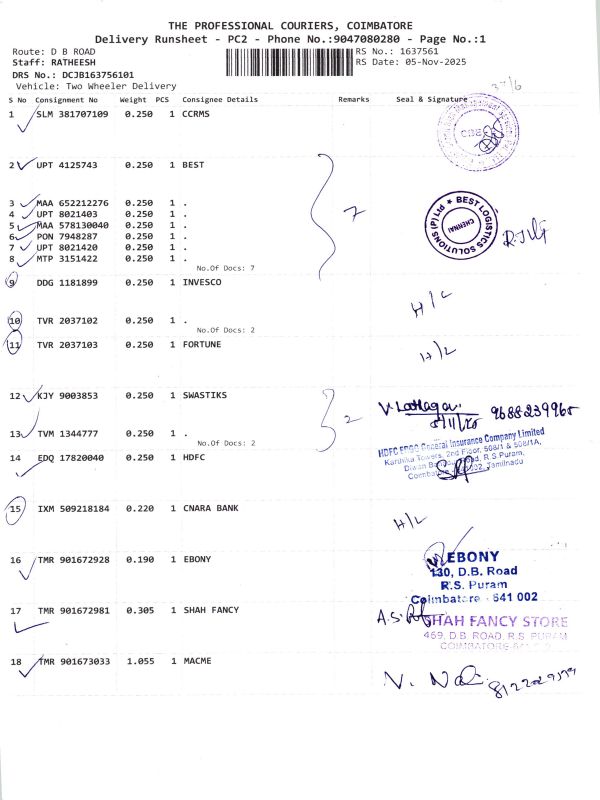 THE PROFESSIONAL COURIERS, COIMBATORE
Delivery Runsheet - PC2 - Phone No.:9047080280 - Page No.:1
Route: D B ROAD
RS No.: 1637561
Staff: RATHEESH
RS Date: 05-Nov-2025
DRS No.: DCJB163756101
Vehicle: Two Wheeler Delivery
S No Consignment No Weight PCS Consignee Details Remarks Seal & Signature
1 SLM 381707109 0.250 1 CCRMS
2 UPT 4125743 0.250 1 BEST
3 MAA 652212276 0.250 1 .
4 UPT 8021403 0.250 1 .
5 MAA 578130040 0.250 1 .
6 PON 7948287 0.250 1 .
7 UPT 8021420 0.250 1 .
8 MTP 3151422 0.250 1 .
No.Of Docs: 7
7
BEST LOGISTICS SOLUTIONS (P) Ltd
CHENNAI
9 DDG 1181899 0.250 1 INVESCO
H/L
10 TVR 2037102 0.250 1 .
No.Of Docs: 2
11 TVR 2037103 0.250 1 FORTUNE
H/L
12 KJY 9003853 0.250 1 SWASTIKS
2
9688239965
13 TVM 1344777 0.250 1 .
5/11/25
No.Of Docs: 2
14 EDQ 17820040 0.250 1 HDFC
HDFC ERGO General Insurance Company Limited
Karthika Towers, 2nd Floor, 508/1 & 508/1A,
Diwan Road, R.S.Puram,
Tamilnadu
15 IXM 509218184 0.220 1 CNARA BANK
H/L
16 TMR 901672928 0.190 1 EBONY
EBONY
130, D.B. Road
R.S. Puram
Coimbatore - 641 002
17 TMR 901672981 0.305 1 SHAH FANCY
A.S.
SHAH FANCY STORE
469, D.B. ROAD, R.S. PURAM
18 TMR 901673033 1.055 1 MACME